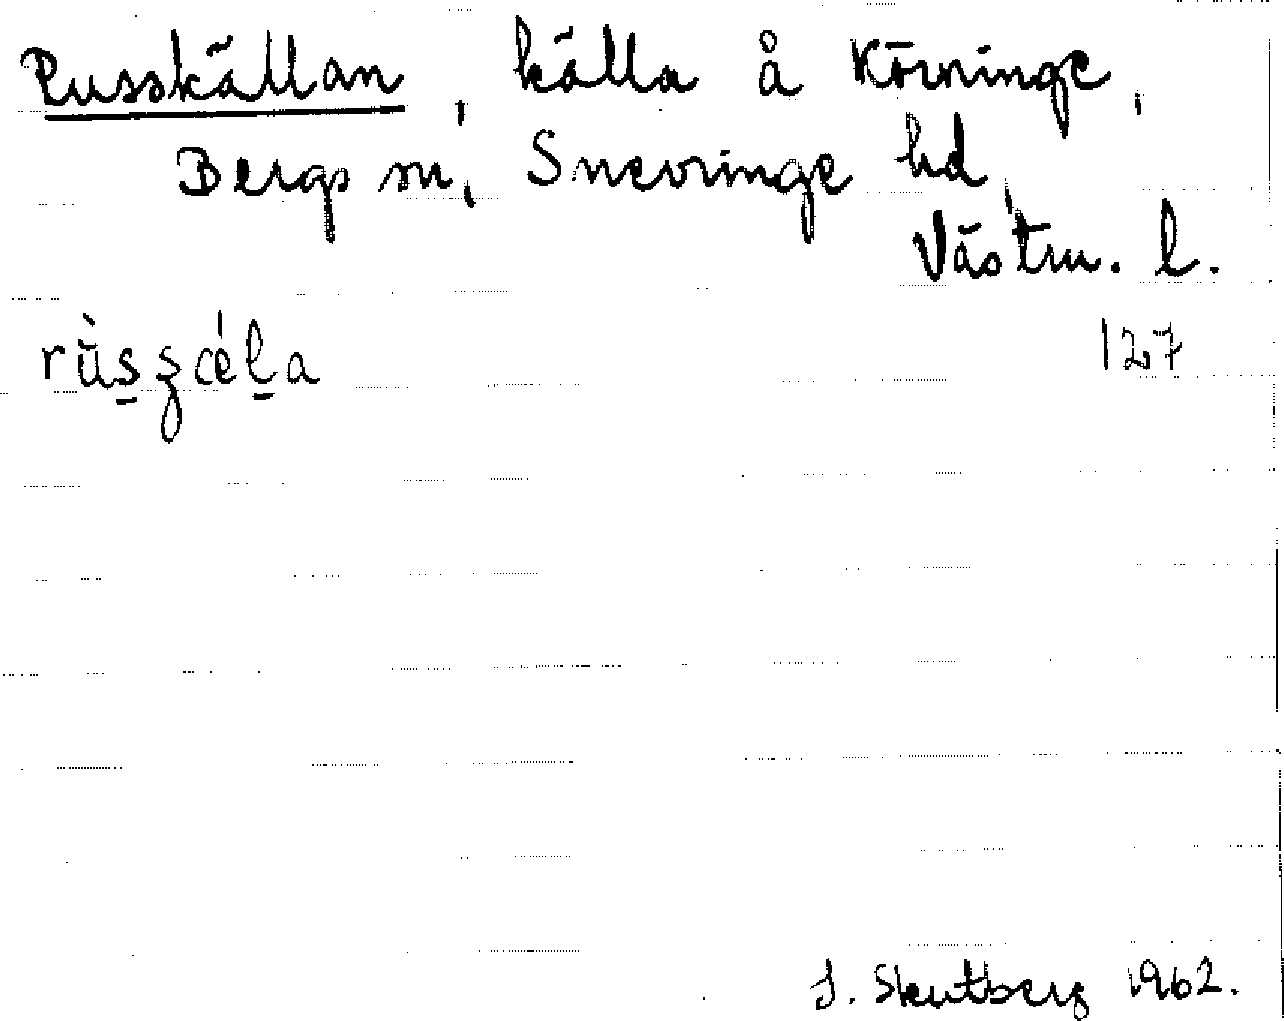 Russkällan, källa å Körninge,
Bergs sn, Snevringe hd,
Västm. l.
127
J. Skutberg 1962.